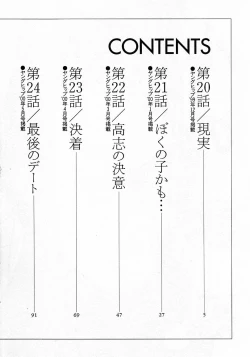 CONTENTS
第20話／現実
●ヤングヒップ'99年12月号掲載
5
第21話／ぼくの子かも…
●ヤングヒップ'00年1月号掲載
27
第22話／高志の決意
●ヤングヒップ'00年3月号掲載
47
第23話／決着
●ヤングヒップ'00年4月号掲載
69
第24話／最後のデート
●ヤングヒップ'00年5月号掲載
91